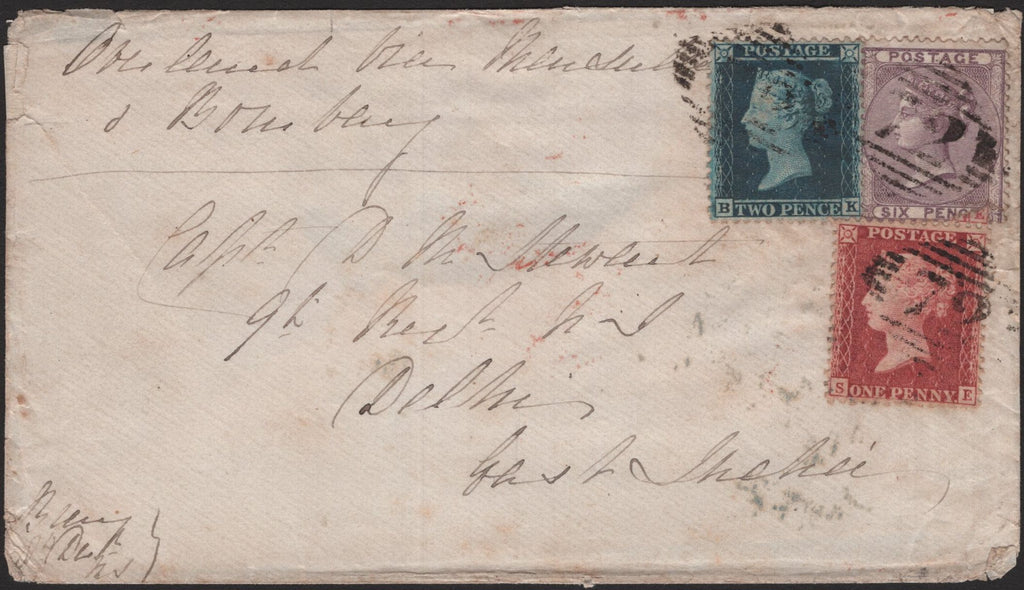 Overland via Marseilles
& Bombay
POSTAGE
B TWO PENCE K
POSTAGE
SIX PENCE
Capt D M Stewart
9th Regt N I
Delhi
East India
POSTAGE
S ONE PENNY E
78